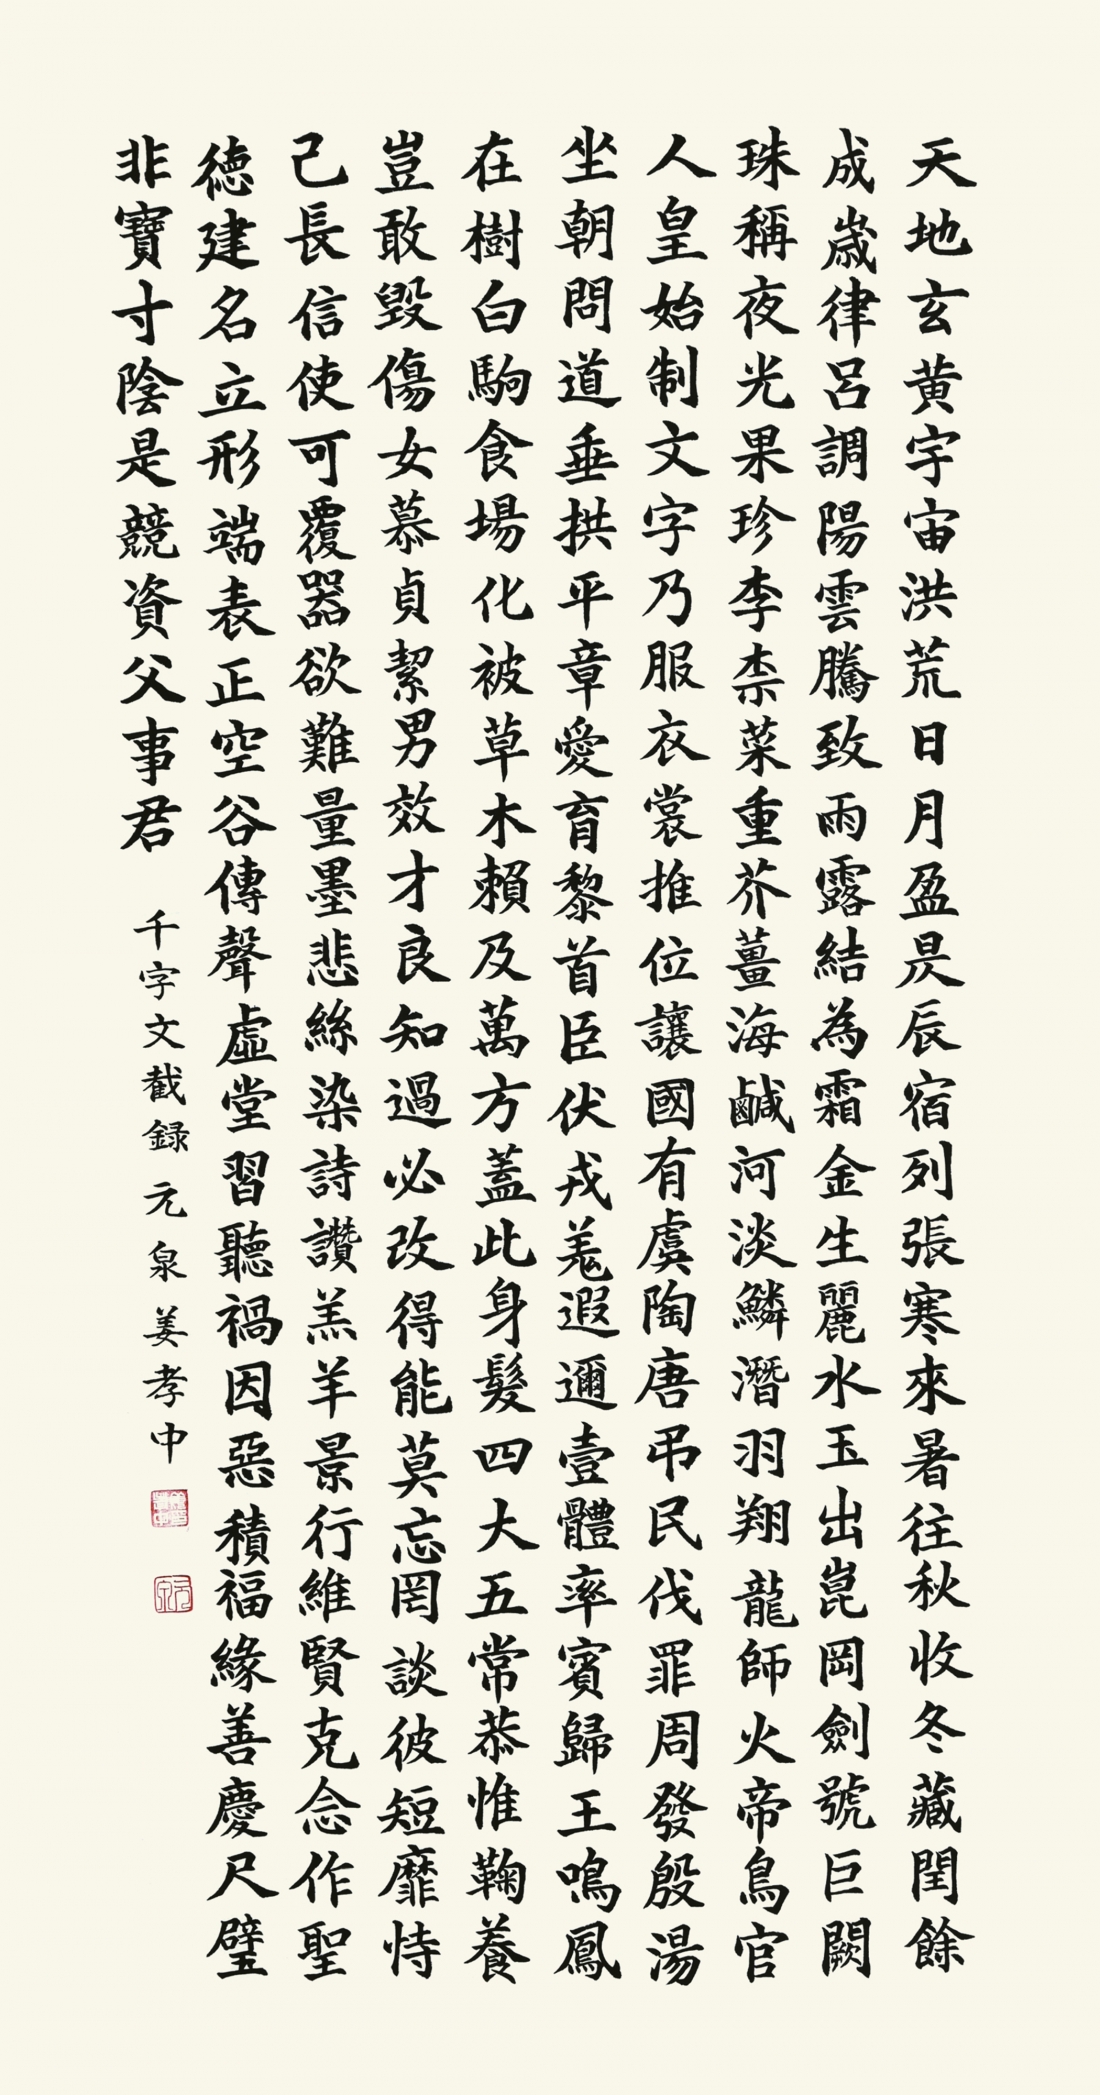 天地玄黃宇宙洪荒日月盈昃辰宿列張寒來暑往秋收冬藏閏餘
成歲律呂調陽雲騰致雨露結為霜金生麗水玉出崑岡劍號巨闕
珠稱夜光果珍李柰菜重芥薑海鹹河淡鱗潛羽翔龍師火帝鳥官
人皇始制文字乃服衣裳推位讓國有虞陶唐弔民伐罪周發殷湯
坐朝問道垂拱平章愛育黎首臣伏戎羌遐邇壹體率賓歸王鳴鳳
在樹白駒食場化被草木賴及萬方蓋此身髮四大五常恭惟鞠養
豈敢毀傷女慕貞絜男效才良知過必改得能莫忘罔談彼短靡恃
己長信使可覆器欲難量墨悲絲染詩讚羔羊景行維賢克念作聖
德建名立形端表正空谷傳聲虛堂習聽禍因惡積福緣善慶尺璧
非寶寸陰是競資父事君 千字文截録 元泉 姜孝中